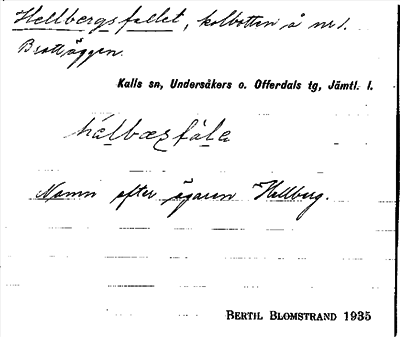 Hellbergsfallet, kolbotten å nr 1.
Brattäggen.
Kalls sn, Undersåkers o. Offerdals tg, Jämtl. l.
hálbæsfàla
Namn efter ägaren Hallberg.
BERTIL BLOMSTRAND 1935